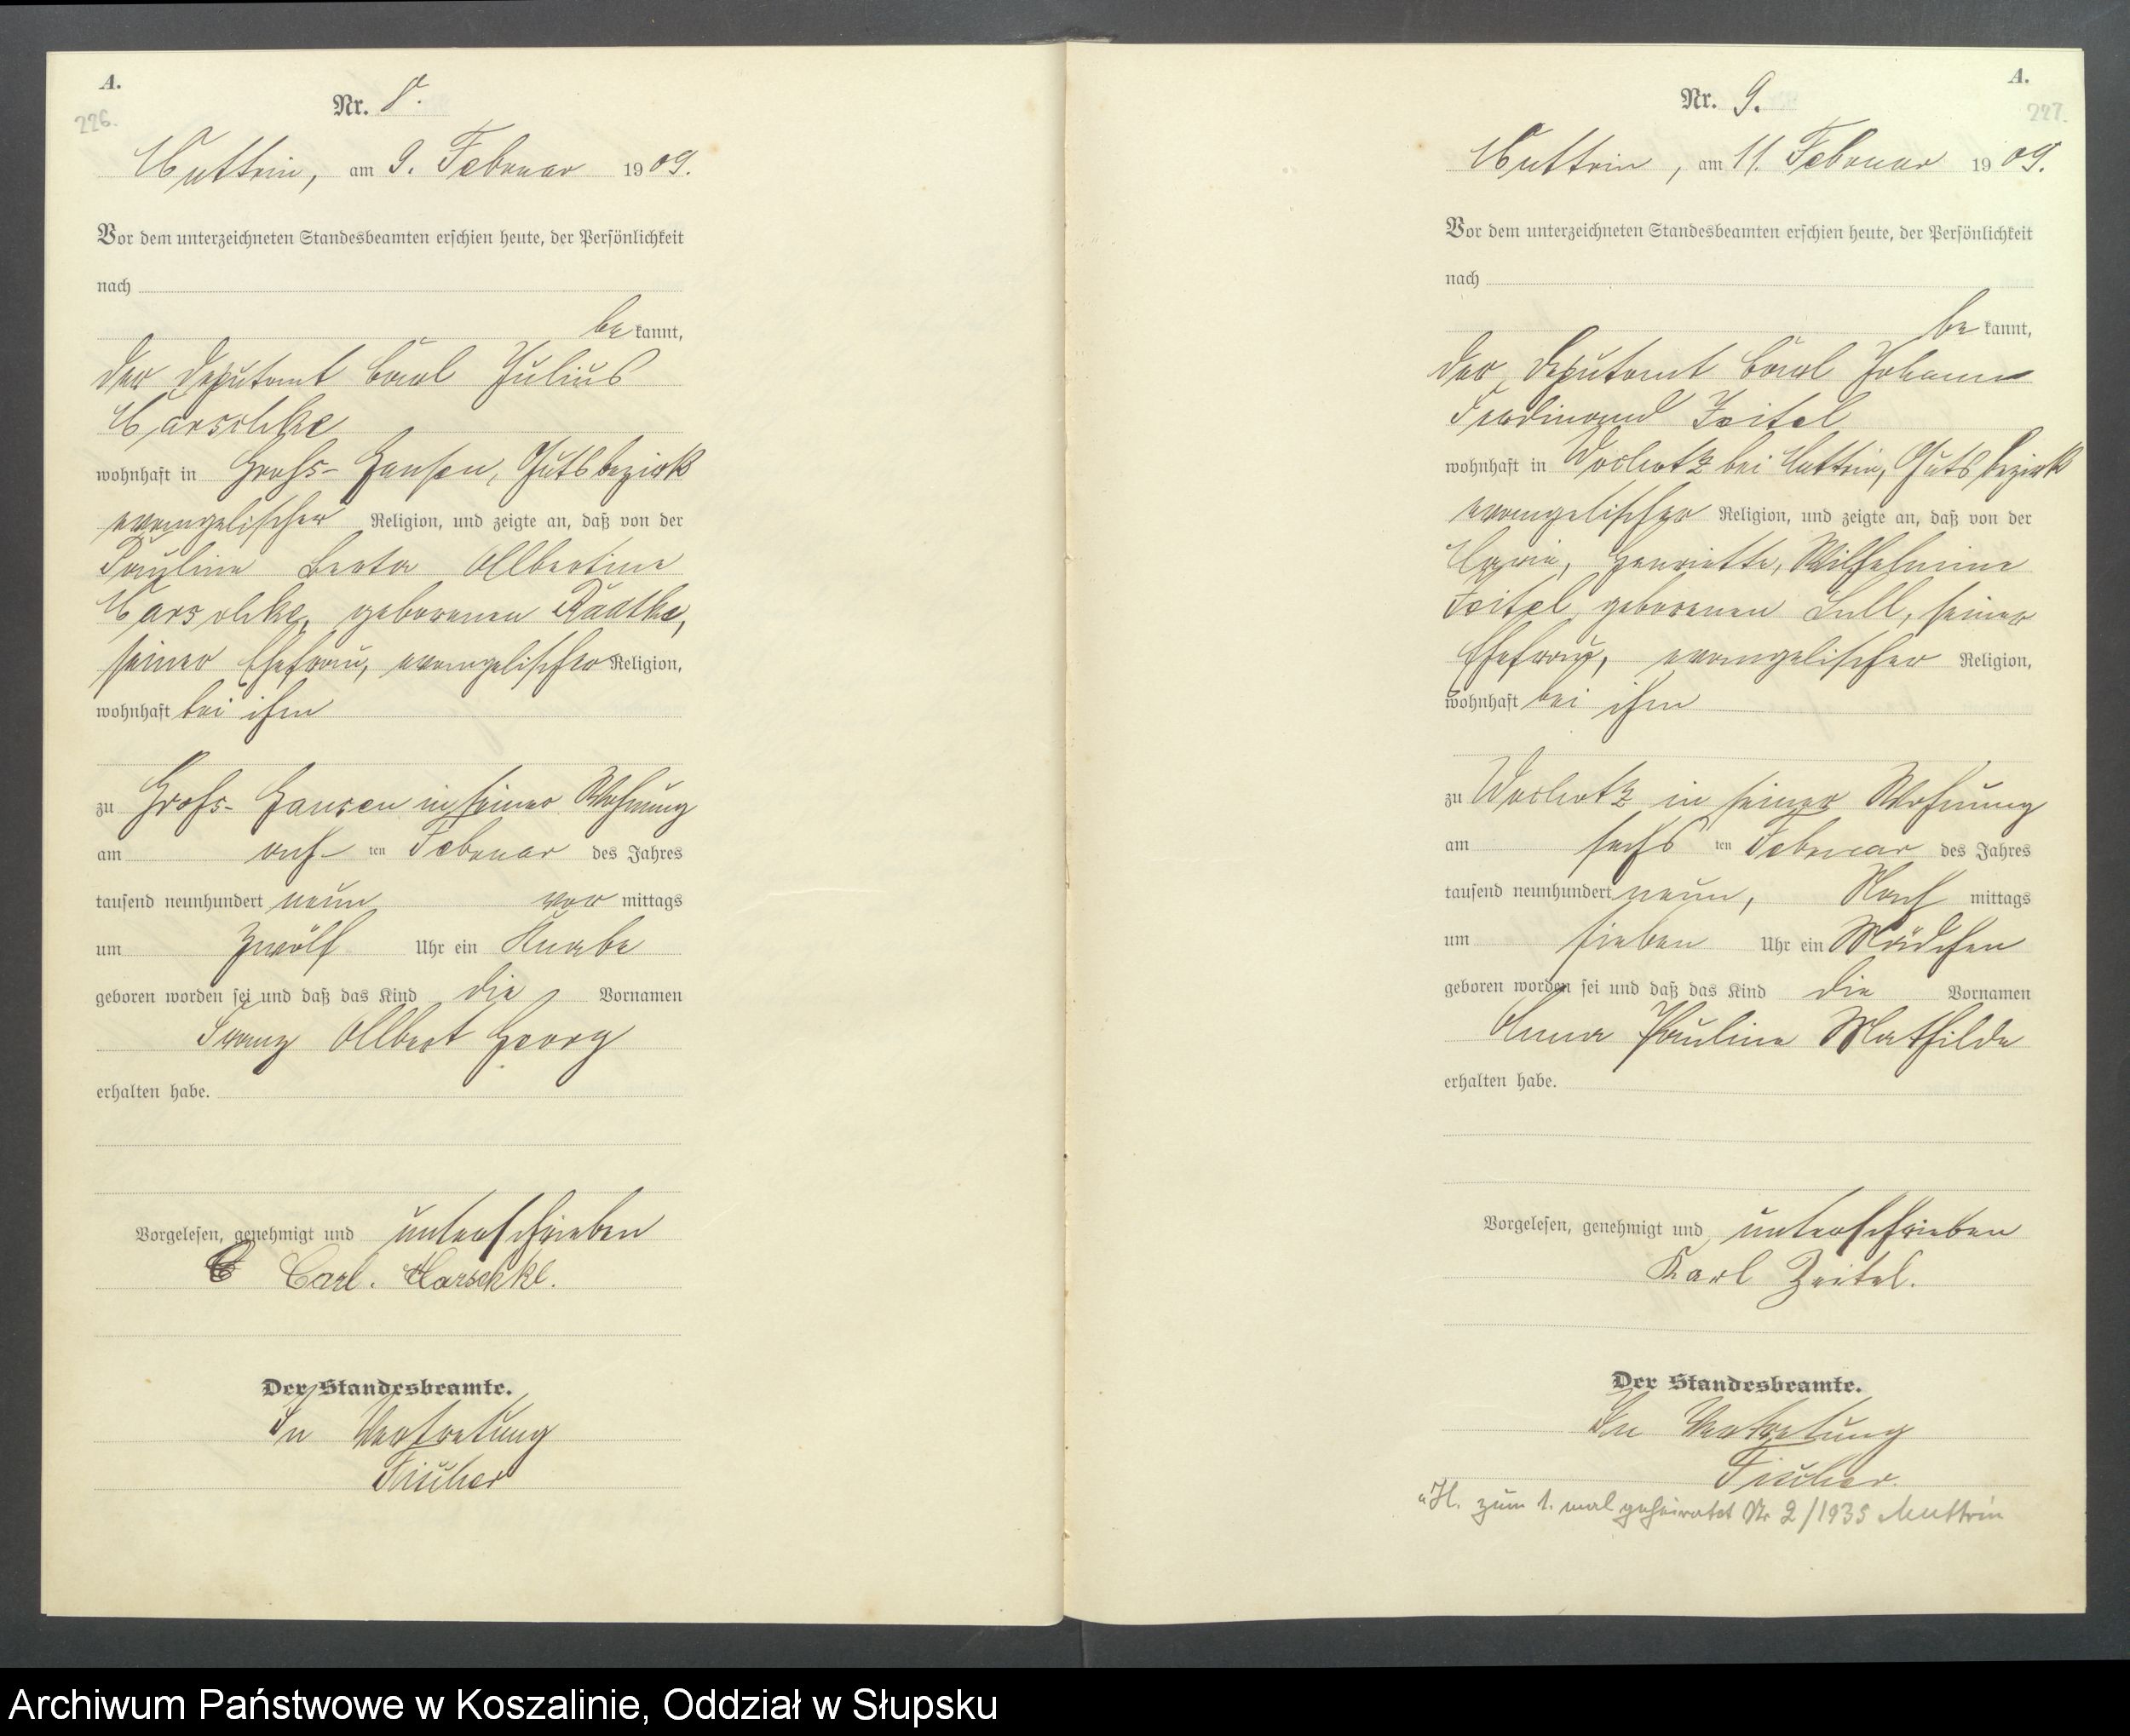 A.
226.
Nr. 8.
Muttrin, am 9. Februar 1909.
Vor dem unterzeichneten Standesbeamten erschien heute, der Persönlichkeit
nach
be kannt,
der Deputant Carl Julius
Harschke
wohnhaft in Groß-Jansen, Gutsbezirk
evangelischer Religion, und zeigte an, daß von der
Pauline Berta Albertine
Harschke, geborenen Radtke,
seiner Ehefrau, evangelischer Religion,
wohnhaft bei ihm
zu Groß-Jansen in seiner Wohnung
am ach ten Februar des Jahres
tausend neunhundert neun vor mittags
um zwölf Uhr ein Knabe
geboren worden sei und daß das Kind die Vornamen
Franz Albert Georg
erhalten habe.
Vorgelesen, genehmigt und unterschrieben
Carl. Harschke.
Der Standesbeamte.
In Vertretung
Fischer
A.
227.
Nr. 9.
Muttrin, am 11. Februar 1909.
Vor dem unterzeichneten Standesbeamten erschien heute, der Persönlichkeit
nach
be kannt,
der Deputant Carl Johann
Ferdinand Zeitel
wohnhaft in bei Muttrin, Gutsbezirk
evangelischer Religion, und zeigte an, daß von der
Marie, Henriette, Wilhelmine
Zeitel geborenen seiner
Ehefrau, evangelischer Religion,
wohnhaft bei ihm
zu in seiner Wohnung
am sechs ten Februar des Jahres
tausend neunhundert neun, Nach mittags
um sieben Uhr ein Mädchen
geboren worden sei und daß das Kind die Vornamen
Anna Pauline Mathilde
erhalten habe.
Vorgelesen, genehmigt und unterschrieben
Karl Zeitel.
Der Standesbeamte.
In Vertretung
Fischer.
H. zum 1. mal geheiratet Nr 2/1935 Muttrin
Archiwum Państwowe w Koszalinie, Oddział w Słupsku